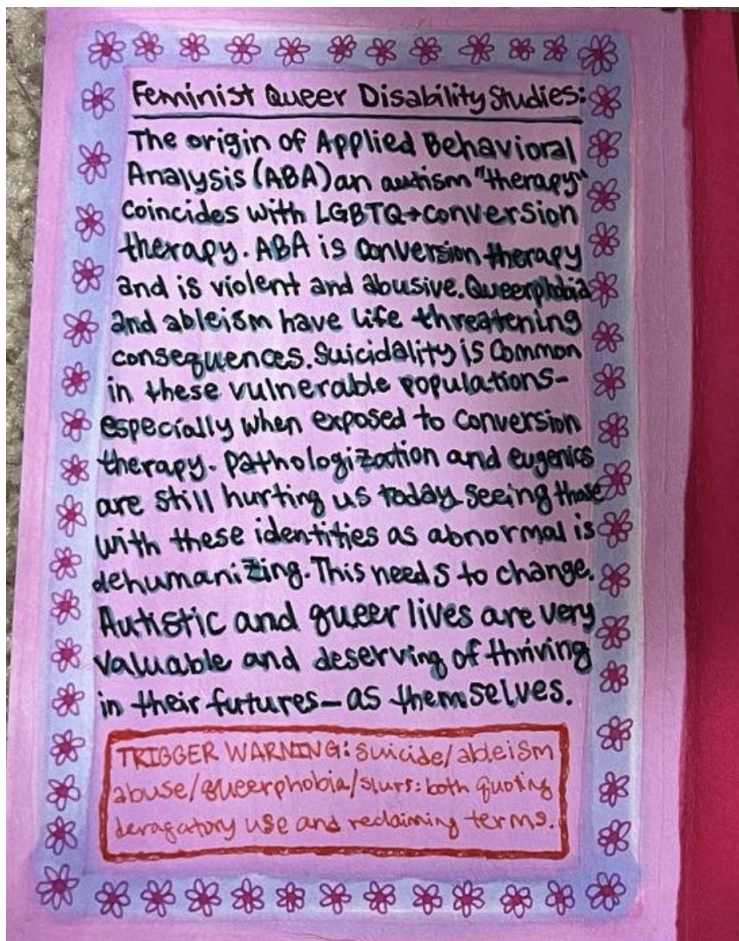 Feminist Queer Disability Studies:
The origin of Applied Behavioral
Analysis (ABA) an autism "therapy"
coincides with LGBTQ+ conversion
therapy. ABA is conversion therapy
and is violent and abusive. Queerphobia
and ableism have life threatening
consequences. Suicidality is common
in these vulnerable populations-
especially when exposed to conversion
therapy. Pathologization and eugenics
are still hurting us today. Seeing those
with these identities as abnormal is
dehumanizing. This needs to change.
Autistic and queer lives are very
valuable and deserving of thriving
in their futures - as themselves.
TRIGGER WARNING: suicide/ableism
abuse/queerphobia/slurs: both quoting
deragatory use and reclaiming terms.